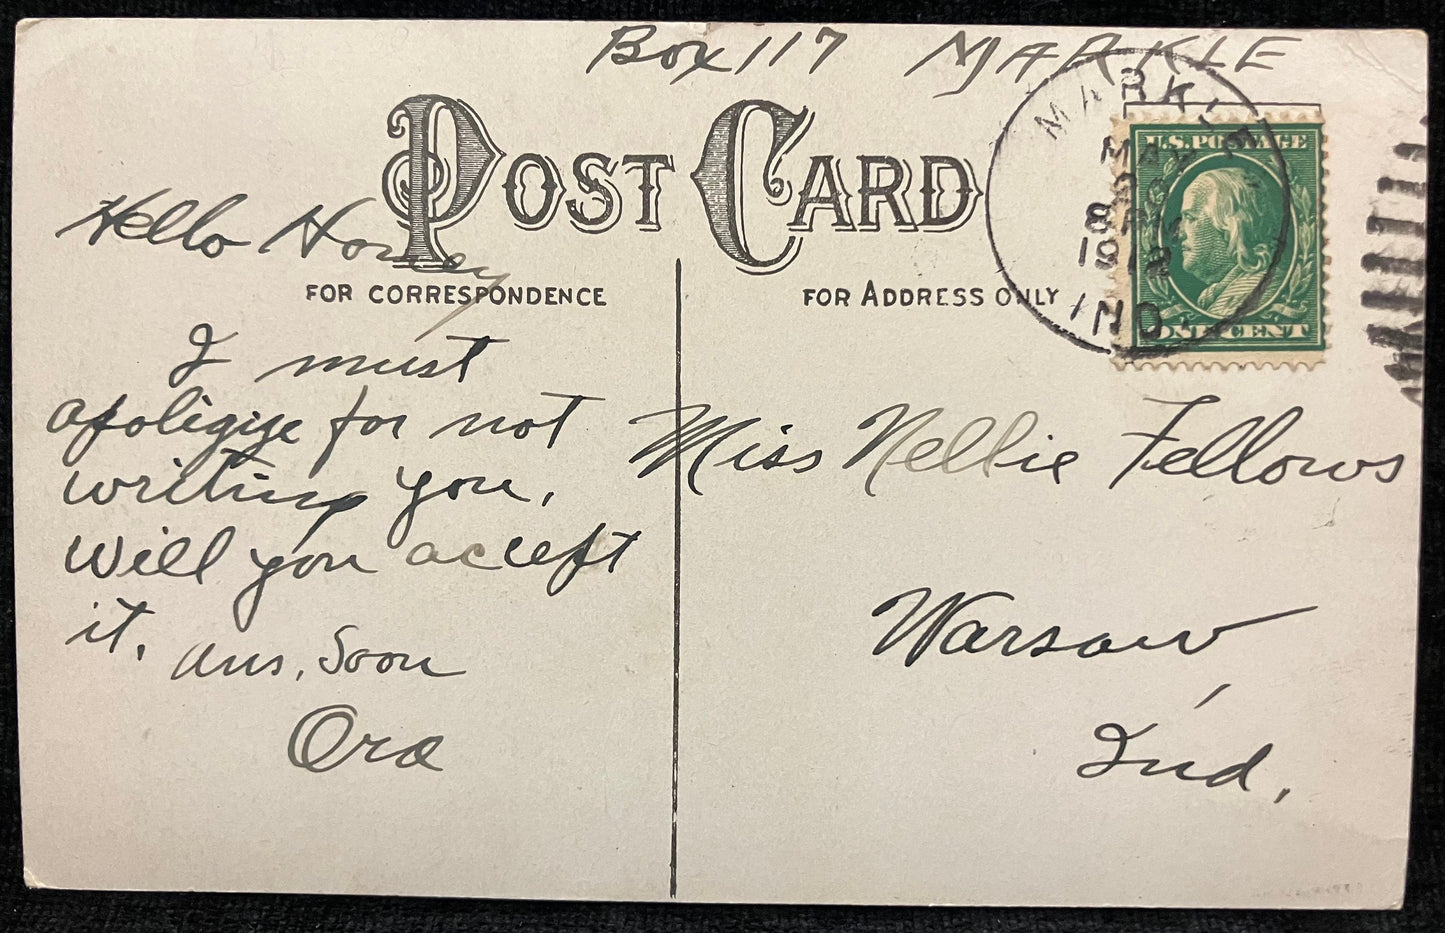 Box 117 MARKLE
POST CARD
FOR CORRESPONDENCE
FOR ADDRESS ONLY
MARKLE
8
1912
IND
U.S. POSTAGE
ONE CENT
Hello Honey
I must
apoligize for not
writing you,
will you accept
it.
Ans, Soon
Ora
Miss Nellie Fellows
Warsaw
Ind.